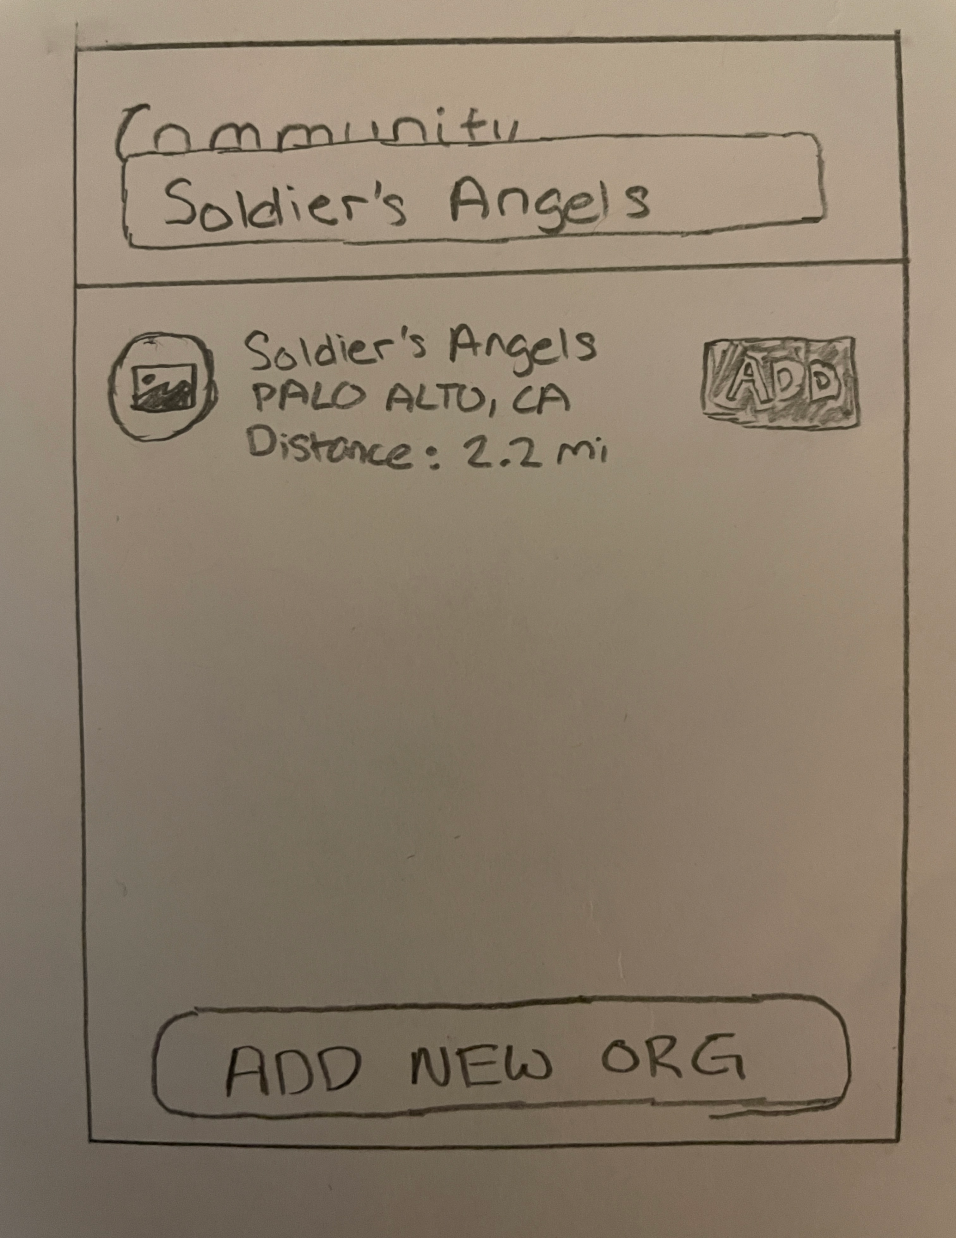 Community
Soldier's Angels
Soldier's Angels
PALO ALTO, CA
Distance: 2.2 mi
ADD
ADD NEW ORG